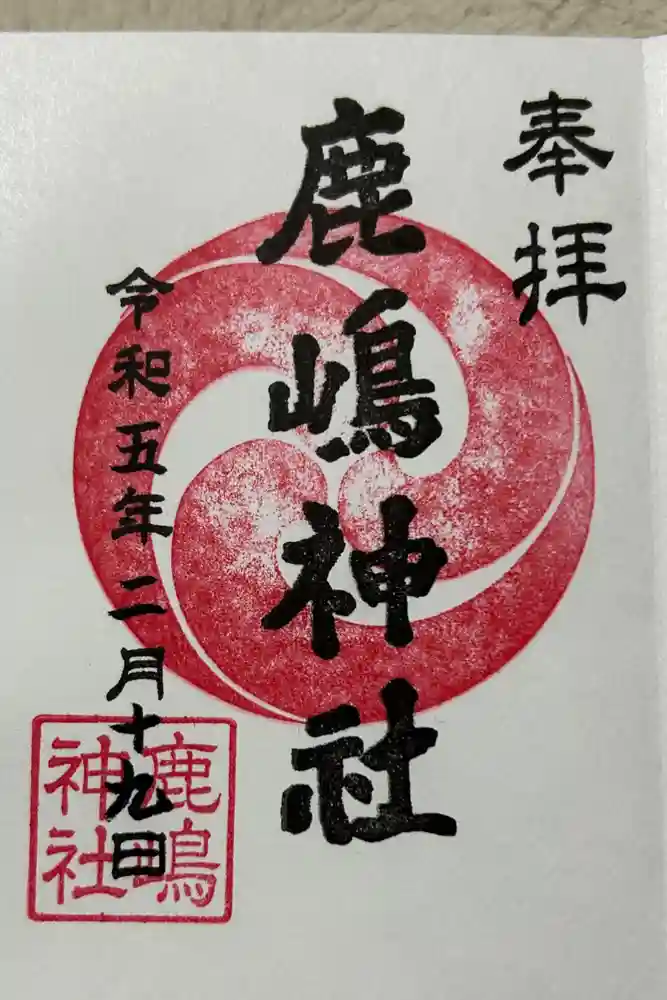 奉拝
鹿嶋神社
令和五年二月十九日
鹿嶋
神社